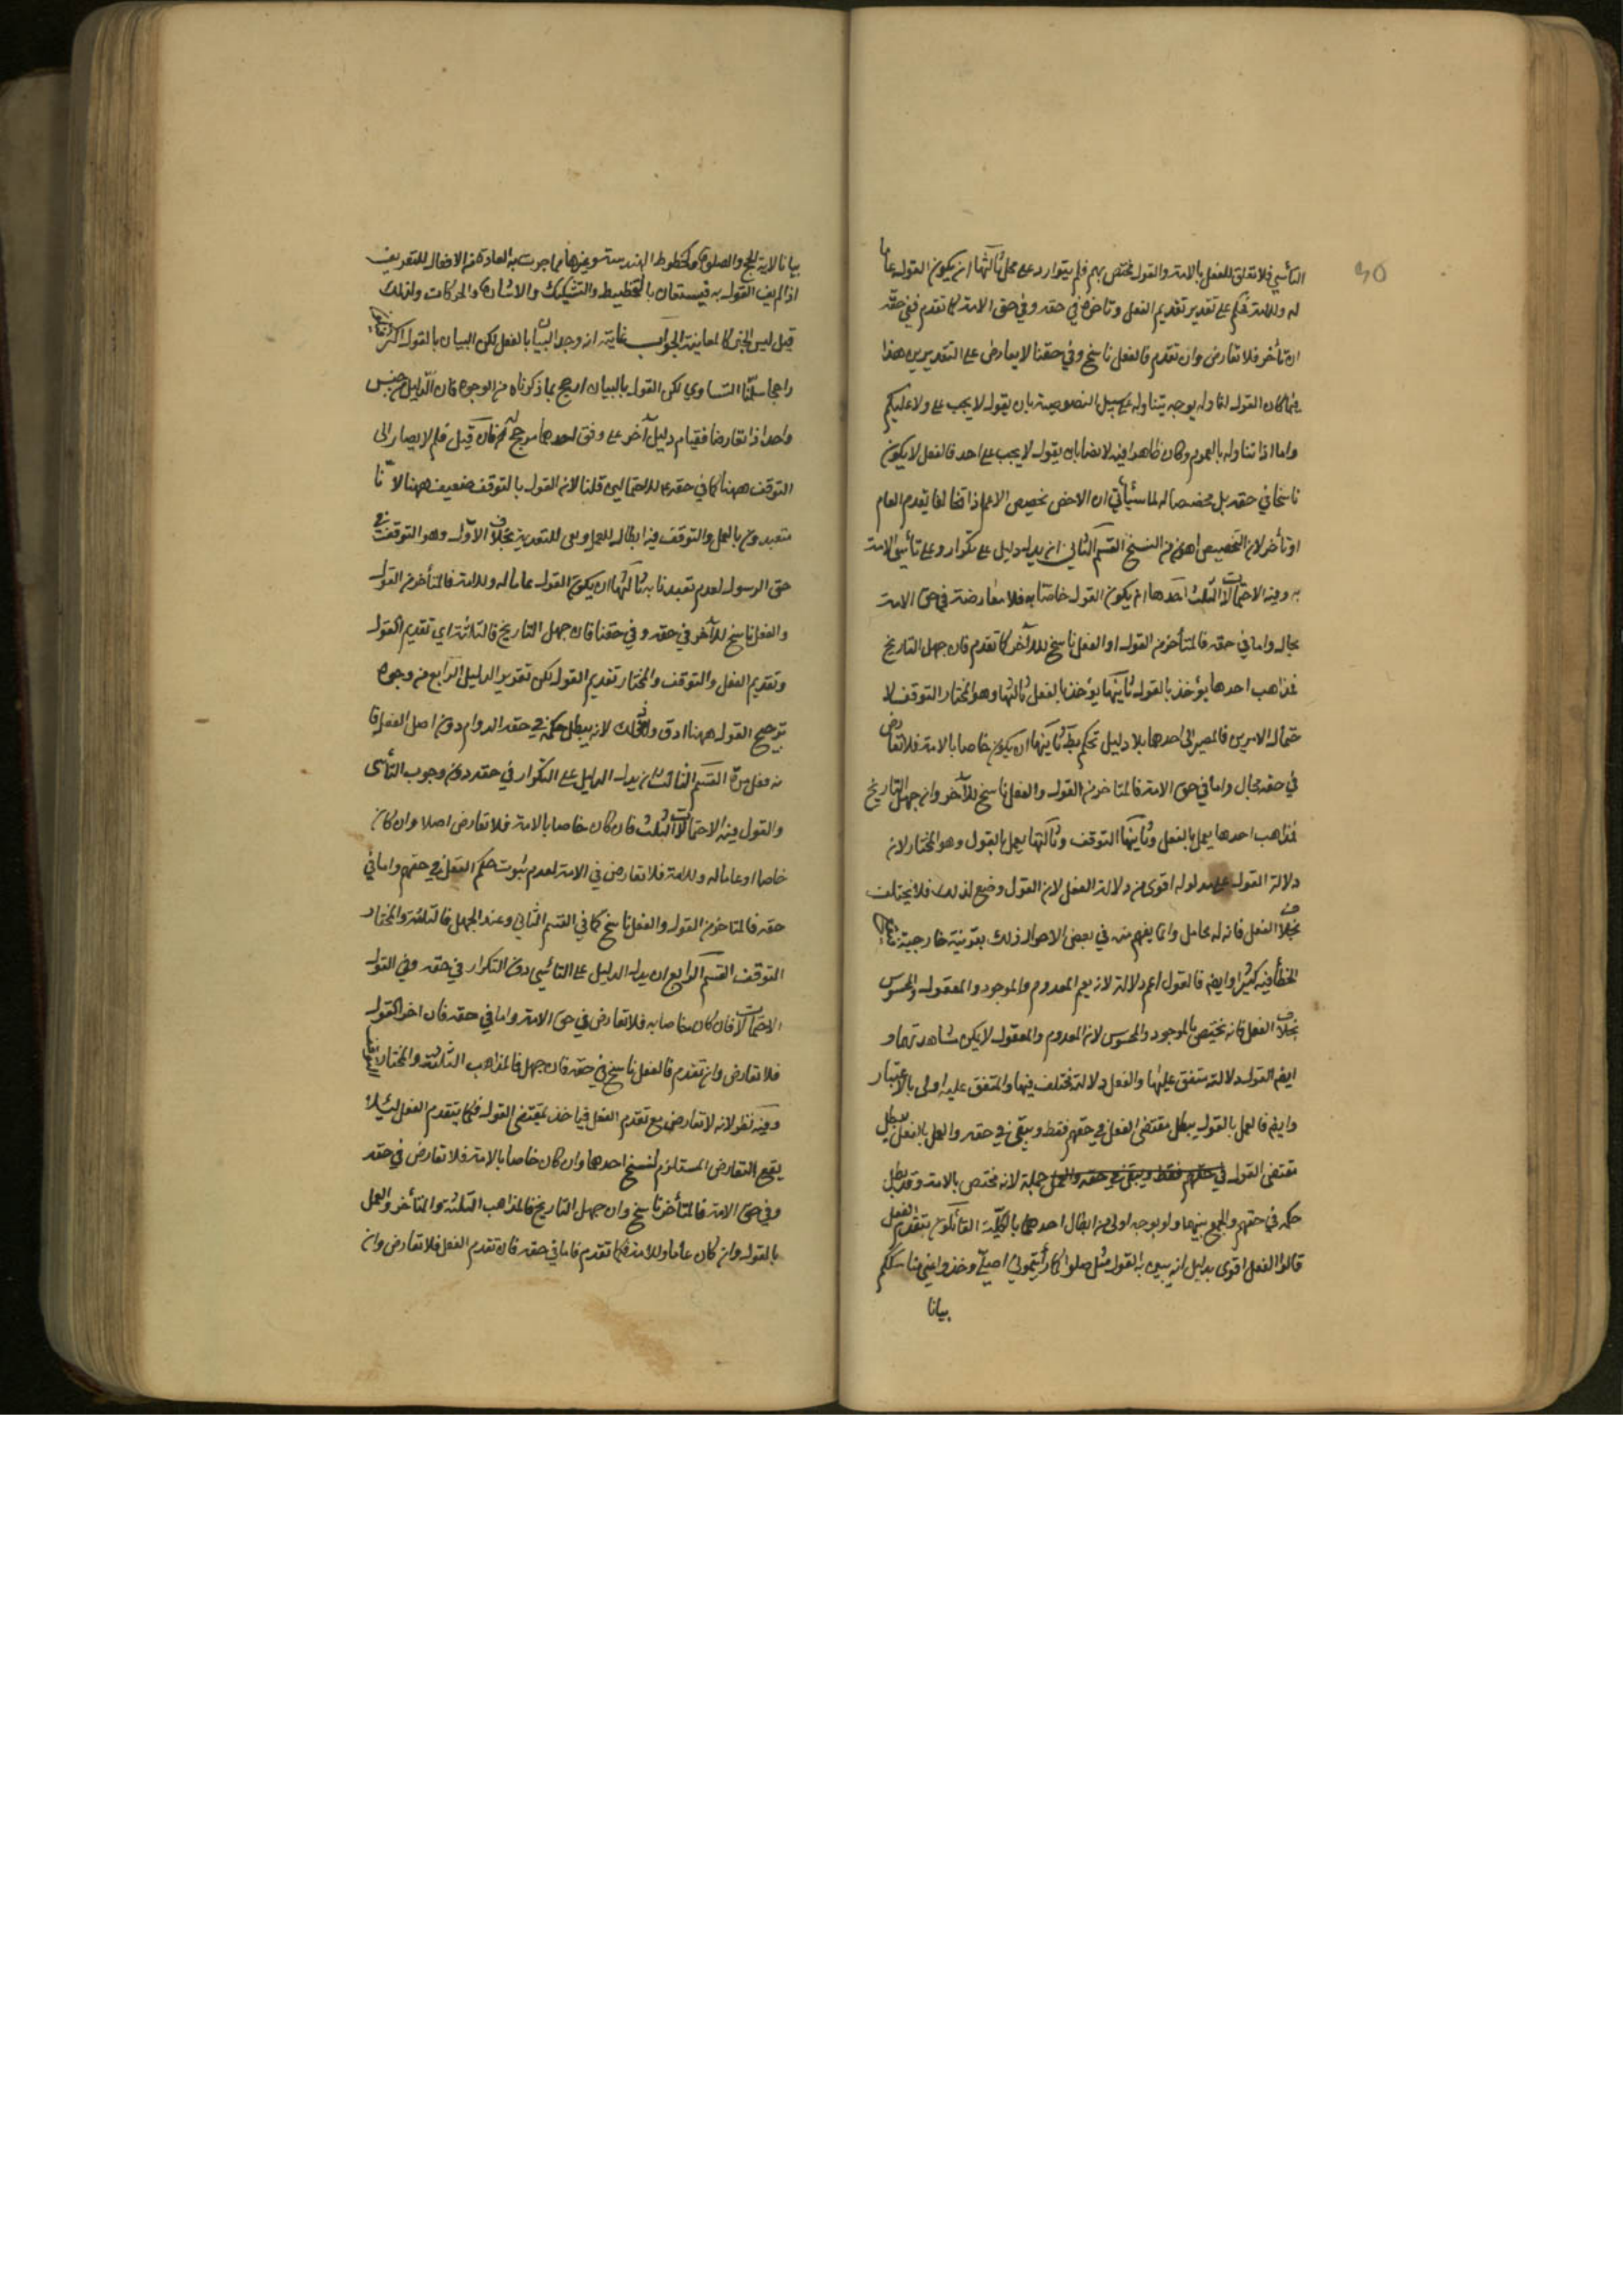 التأسي فلا تعلق للفعل بالامة والقول مختص بهم فلم يتوارد على محل ثالثها ان يكون القول عاما
له وللامة فحكم على تقدير تقديم الفعل وتاخره في حقه وفي حق الامة كما تقدم ففي حقه
ان تأخر فلا تعارض وان تقدم فالفعل ناسخ وفي حقنا لا يعارض على التقديرين هذا
فيما كان القول لنا وله بوجه يتناوله على سبيل النصوصية بان يقول لا يجب علي ولا عليكم
واما اذا تناوله بالعموم وكان ظاهرا فيه لا نصا بان يقول لا يجب على احد فالفعل لا يكون
ناسخا في حقه بل مخصصا له لما سيأتي ان الاخص يخصص الاعم اذا تخالفا تقدم العام
او تأخر لان التخصيص اهون من النسخ القسم الثاني ان يدل دليل على تكرار وعلى تأسي الامة
به وفيه الاحتمالات الثلث احدها ان يكون القول خاصا به فلا معارضة في حق الامة
بحال واما في حقه فالمتأخر من القول او الفعل ناسخ للآخر كما تقدم فان جهل التاريخ
فمذاهب احدها يؤخذ بالقول ثانيها يؤخذ بالفعل ثالثها وهو المختار التوقف لا
حتمال الامرين فالمصير الى احدهما بلا دليل تحكم بط ثانيها ان يكون خاصا بالامة فلا تعارض
في حقه بحال واما في حق الامة فالمتاخر من القول والفعل ناسخ للآخر وان جهل التاريخ
فمذاهب احدها يعمل بالفعل وثانيها التوقف وثالثها يعمل بالقول وهو المختار لان
دلالة القول على مدلوله اقوى من دلالة الفعل لان القول وضع لذلك فلا يختلف
بخلاف الفعل فانه له محامل وانما يفهم منه في بعض الاحوال ذلك بقرينة خارجية فيقع
الخطأ فيه كثيرا وايضا فالقول اعم دلالة لانه يعم المعدوم والموجود والمعقول والمحسوس
بخلاف الفعل فانه يختص بالموجود والمحسوس لان المعدوم والمعقول لا يمكن مشاهدتهما و
ايضا القول دلالته متفق عليها والفعل دلالته مختلف فيها والمتفق عليه اولى بالاعتبار
وايضا فالعمل بالقول يبطل مقتضى الفعل في حقهم فقط ويبقى في حقه والعمل بالفعل يبطل
مقتضى القول في حقهم فقط ويبقى في حقه والعمل جملة لانه مختص بالامة وقد بطل
حكمه في حقهم والجمع بينهما ولو بوجه اولى من ابطال احدهما بالكلية القائلون بتقدم الفعل
قالوا الفعل اقوى بدليل انه يبين به القول مثل صلوا كما رأيتموني اصلي وخذوا عني مناسككم
بيانا
بيانا لاية الحج والصلوة وكخطوط الهندسة وغيرها مما جرت به العادة من الافعال للتعريف
اذا لم يف القول به فيستعان بالتخطيط والتشكيك والاشارة والحركات ولذلك
قيل ليس الخبر كالمعاينة الجواب غايته انه وجد البيان بالفعل لكن البيان بالقول اكثر
راجحا سلمنا التساوي لكن القول بالبيان ارجح بما ذكرناه من الوجوه فان الدليل من جنس
واحد اذا تعارضا فقيام دليل آخر على وفق احدهما مرجح له فان قيل فلم لا يصار الى
التوقف ههنا كما في حقه للاحتمالين قلنا لان القول بالتوقف ضعيف ههنا لانا
متعبدون بالعمل والتوقف فيه ابطال للعمل ونفي للتعبد به بخلاف الاول وهو التوقف في
حق الرسول لعدم تعبدنا به ثالثها ان يكون القول عاما له وللامة فالمتأخر من القول
والفعل ناسخ للآخر في حقه وفي حقنا فان جهل التاريخ فالثلاثة اي تقديم القول
وتقديم الفعل والتوقف والمختار تقديم القول لكن تقرير الدليل الرابع من وجوه
ترجيح القول ههنا ادق وذلك لانه يبطل حكمه في حقه الدوام دون اصل الفعل فا
نه فعل مرة القسم الثالث ان يدل الدليل على التكرار في حقه دون وجوب التأسي
والقول فيه الاحتمالات الثلث فان كان خاصا بالامة فلا تعارض اصلا وان كان
خاصا او عاما له وللامة فلا تعارض في الامة لعدم ثبوت حكم الفعل في حقهم واما في
حقه فالمتاخر من القول والفعل ناسخ كما في القسم الثاني وعند الجهل فالثلثة والمختار
التوقف القسم الرابع ان يدل الدليل على التأسي دون التكرار في حقه وفي القول
الاحتمالات فان كان خاصا به فلا تعارض في حق الامة واما في حقه فان اخر القول
فلا تعارض وان تقدم فالفعل ناسخ في حقه فان جهل فالمذاهب الثلثة والمختار
وفيه نظر لانه لا تعارض مع تقدم الفعل فيأخذ بمقتضى القول فحكما يتقدم الفعل لئلا
يقع التعارض المستلزم لنسخ احدهما وان كان خاصا بالامة فلا تعارض في حقه
وفي حق الامة فالمتأخر ناسخ وان جهل التاريخ فالمذاهب الثلثة والمتأخر والعمل
بالقول وان كان عاما وللامة فكما تقدم فاما في حقه فان تقدم الفعل فلا تعارض وان